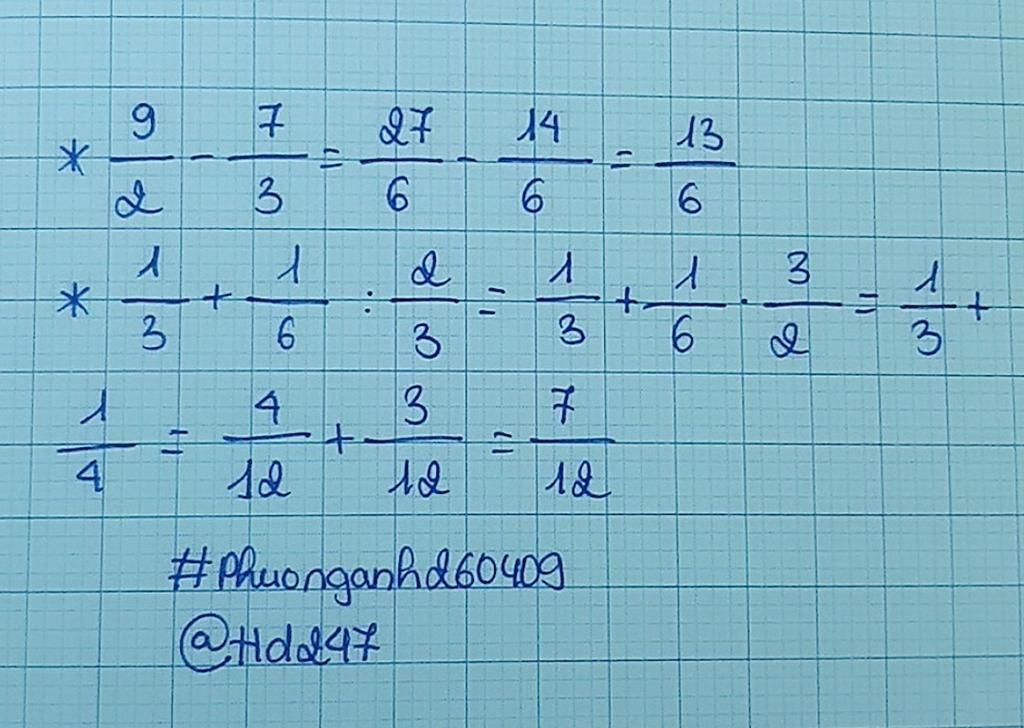 * 9/2 - 7/3 = 27/6 - 14/6 = 13/6
* 1/3 + 1/6 : 2/3 = 1/3 + 1/6 . 3/2 = 1/3 +
1/4 = 4/12 + 3/12 = 7/12
#phuonganh260409
@Hd247